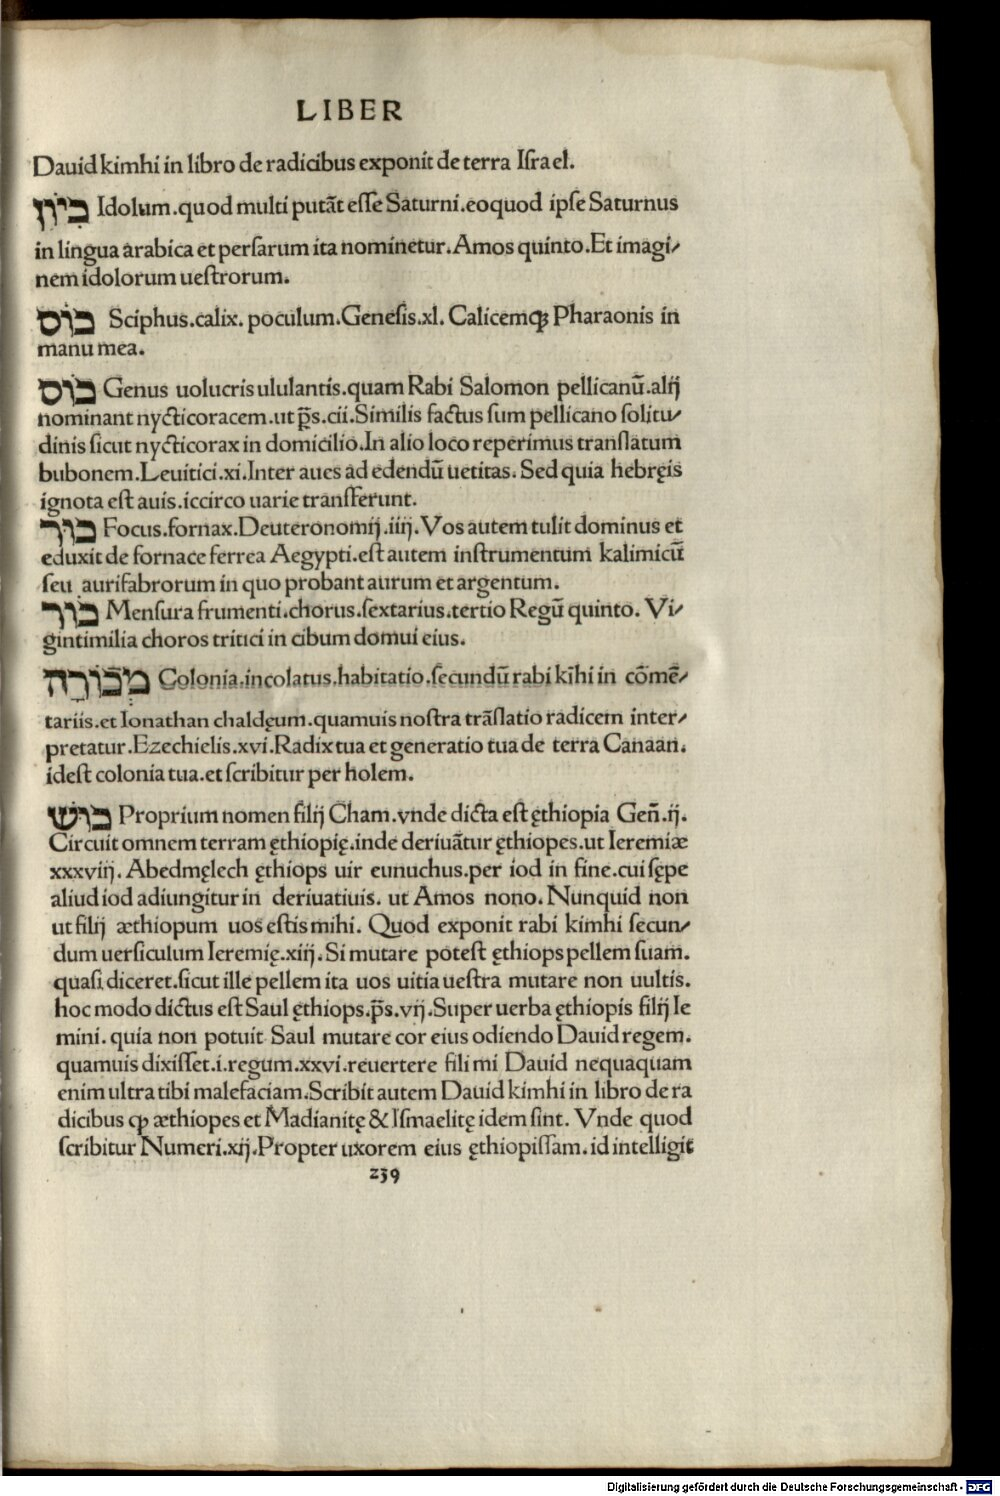 LIBER
Dauid kimhi in libro de radicibus exponit de terra Iſrael.
כִּיוּן Idolum.quod multi putāt eſſe Saturni.eoquod ipſe Saturnus
in lingua arabica et perſarum ita nominetur.Amos quinto.Et imagi⸗
nem idolorum ueſtrorum.
כּוֹס Sciphus.calix. poculum.Geneſis.xl. Calicemqꝫ Pharaonis in
manu mea.
כּוֹס Genus uolucris ululantis.quam Rabi Salomon pellicanū.alij
nominant nycticoracem.ut p̄s.cii.Similis factus ſum pellicano ſolitu⸗
dinis ſicut nycticorax in domicilio.In alio loco reperimus tranſlatum
bubonem.Leuitici.xi.Inter aues ad edendū uetitas. Sed quia hebręis
ignota eſt auis.iccirco uarie tranſferunt.
כּוּר Focus.fornax.Deuteronomij.iiij.Vos autem tulit dominus et
eduxit de fornace ferrea Aegypti.eſt autem inſtrumentum kalimicū
ſeu aurifabrorum in quo probant aurum et argentum.
כּוֹר Menſura frumenti.chorus.ſextarius.tertio Regū quinto. Vi⸗
gintimilia choros tritici in cibum domui eius.
מְכוֹרָה Colonia.incolatus.habitatio.ſecundū rabi kīhi in cōmē⸗
tariis.et Ionathan chaldęum.quamuis noſtra trāſlatio radicem inter⸗
pretatur.Ezechielis.xvi.Radix tua et generatio tua de terra Canaan.
ideſt colonia tua.et ſcribitur per holem.
כּוּשׁ Proprium nomen filij Cham.vnde dicta eſt ęthiopia Geñ.ij.
Circuit omnem terram ęthiopię.inde deriuātur ęthiopes.ut Ieremiæ
xxxviij. Abedmęlech ęthiops uir eunuchus.per iod in fine.cui ſępe
aliud iod adiungitur in deriuatiuis. ut Amos nono. Nunquid non
ut filij æthiopum uos eſtis mihi. Quod exponit rabi kimhi ſecun⸗
dum uerſiculum Ieremię.xiij.Si mutare poteſt ęthiops pellem ſuam.
quaſi diceret.ſicut ille pellem ita uos uitia ueſtra mutare non uultis.
hoc modo dictus eſt Saul ęthiops.p̄s.vij.Super uerba ęthiopis filij Ie
mini. quia non potuit Saul mutare cor eius odiendo Dauid regem.
quamuis dixiſſet.i.regum.xxvi.reuertere fili mi Dauid nequaquam
enim ultra tibi malefaciam.Scribit autem Dauid kimhi in libro de ra
dicibus ꝙ æthiopes et Madianitę & Iſmaelitę idem ſint. Vnde quod
ſcribitur Numeri.xij.Propter uxorem eius ęthiopiſſam.id intelligit
239
Digitalisierung gefördert durch die Deutsche Forschungsgemeinschaft - DFG